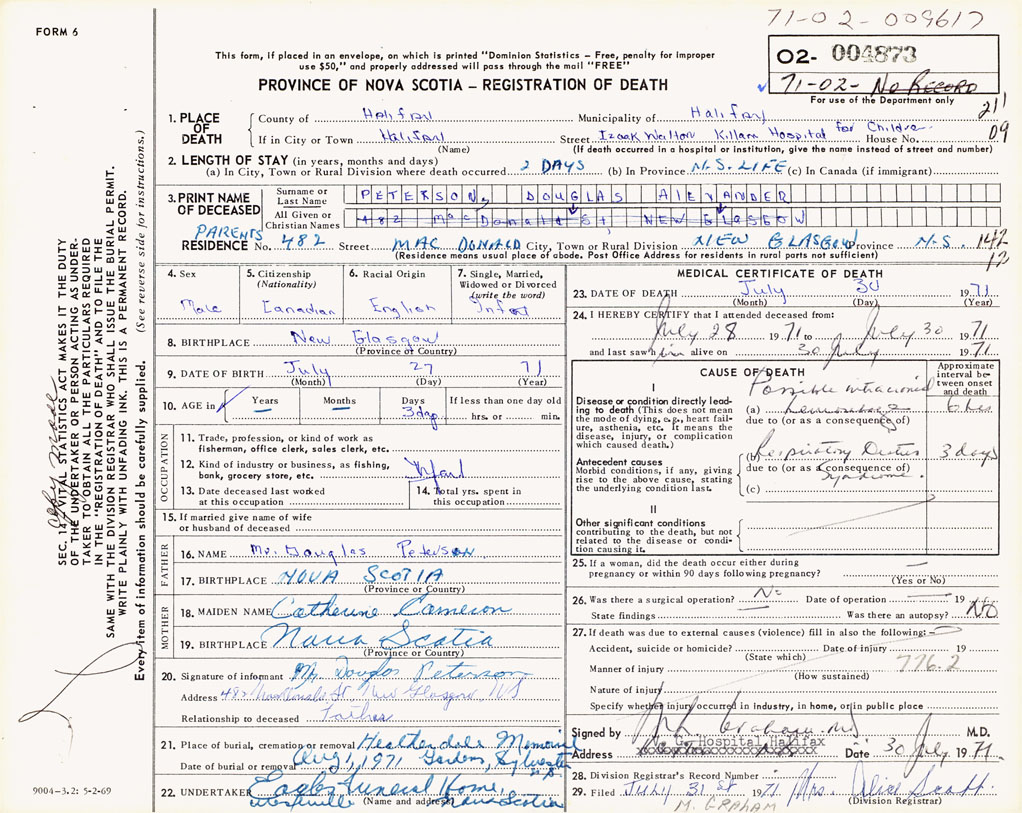 71-02-009617
FORM 6
This form, if placed in an envelope, on which is printed "Dominion Statistics – Free, penalty for improper
use $50," and properly addressed will pass through the mail "FREE"
02- 004873
PROVINCE OF NOVA SCOTIA – REGISTRATION OF DEATH
✓ 71-02- No Record
For use of the Department only
211
09
1. PLACE OF DEATH
County of Halifax Municipality of Halifax
If in City or Town Halifax Street Izaak Walton Killam Hospital for Children House No.
(Name) (If death occurred in a hospital or institution, give the name instead of street and number)
2. LENGTH OF STAY (in years, months and days)
(a) In City, Town or Rural Division where death occurred 2 DAYS (b) In Province N.S. LIFE (c) In Canada (if immigrant)
3. PRINT NAME OF DECEASED
Surname or Last Name PETERSON, DOUGLAS ALEXANDER
All Given or Christian Names 482 MacDonald St NEW GLASGOW
PARENTS
RESIDENCE No. 482 Street MAC DONALD City, Town or Rural Division NEW GLASGOW Province N.S. 142
(Residence means usual place of abode. Post Office Address for residents in rural parts not sufficient) 12
4. Sex
Male
5. Citizenship (Nationality)
Canadian
6. Racial Origin
English
7. Single, Married, Widowed or Divorced (write the word)
Infant
8. BIRTHPLACE New Glasgow
(Province or Country)
9. DATE OF BIRTH July 27 71
(Month) (Day) (Year)
10. AGE in Years Months Days If less than one day old
3 days hrs. or min.
OCCUPATION
11. Trade, profession, or kind of work as fisherman, office clerk, sales clerk, etc.
12. Kind of industry or business, as fishing, bank, grocery store, etc. Infant
13. Date deceased last worked at this occupation
14. Total yrs. spent in this occupation
15. If married give name of wife or husband of deceased
FATHER
16. NAME Mr. Douglas Peterson
17. BIRTHPLACE NOVA SCOTIA
(Province or Country)
MOTHER
18. MAIDEN NAME Catherine Cameron
19. BIRTHPLACE Nova Scotia
(Province or Country)
20. Signature of informant Mr. Douglas Peterson
Address 482 MacDonald St New Glasgow, N.S
Relationship to deceased Father
21. Place of burial, cremation or removal Heatherdale Memorial
Date of burial or removal Aug 1, 1971 Gardens, Sylvester N.S.
22. UNDERTAKER Eagles Funeral Home,
(Name and address) Westville Nova Scotia
MEDICAL CERTIFICATE OF DEATH
23. DATE OF DEATH July 30 1971
(Month) (Day) (Year)
24. I HEREBY CERTIFY that I attended deceased from:
July 28 1971 to July 30 1971
and last saw him alive on 30 July 1971
CAUSE OF DEATH
Approximate interval between onset and death
I
Disease or condition directly leading to death (This does not mean the mode of dying, e.g., heart failure, asthenia, etc. It means the disease, injury, or complication which caused death.)
Possible intracranial
(a) hemorrhage 6 hrs
due to (or as a consequence of)
Antecedent causes
Morbid conditions, if any, giving rise to the above cause, stating the underlying condition last.
(b) Respiratory Distress 3 days
due to (or as a consequence of)
Syndrome.
(c)
II
Other significant conditions contributing to the death, but not related to the disease or condition causing it.
25. If a woman, did the death occur either during
pregnancy or within 90 days following pregnancy? —
(Yes or No)
26. Was there a surgical operation? No Date of operation — 19
State findings Was there an autopsy? No
27. If death was due to external causes (violence) fill in also the following: –
Accident, suicide or homicide? Date of injury 19
(State which) 776.2
Manner of injury
(How sustained)
Nature of injury
Specify whether injury occurred in industry, in home, or in public place
Signed by Graham M.D.
Address V. G. Hospital, Halifax Date 30 July 1971
28. Division Registrar's Record Number
29. Filed July 31st 1971 Mrs. Alice Scott
M. GRAHAM (Division Registrar)
SEC. 14 VITAL STATISTICS ACT MAKES IT THE DUTY
OF THE UNDERTAKER OR PERSON ACTING AS UNDER-
TAKER TO OBTAIN ALL THE PARTICULARS REQUIRED
IN THE "REGISTRATION OF DEATH" AND TO FILE THE
SAME WITH THE DIVISION REGISTRAR WHO SHALL ISSUE THE BURIAL PERMIT.
WRITE PLAINLY WITH UNFADING INK. THIS IS A PERMANENT RECORD.
Every item of information should be carefully supplied. (See reverse side for instructions.)
9004-3.2: 5-2-69